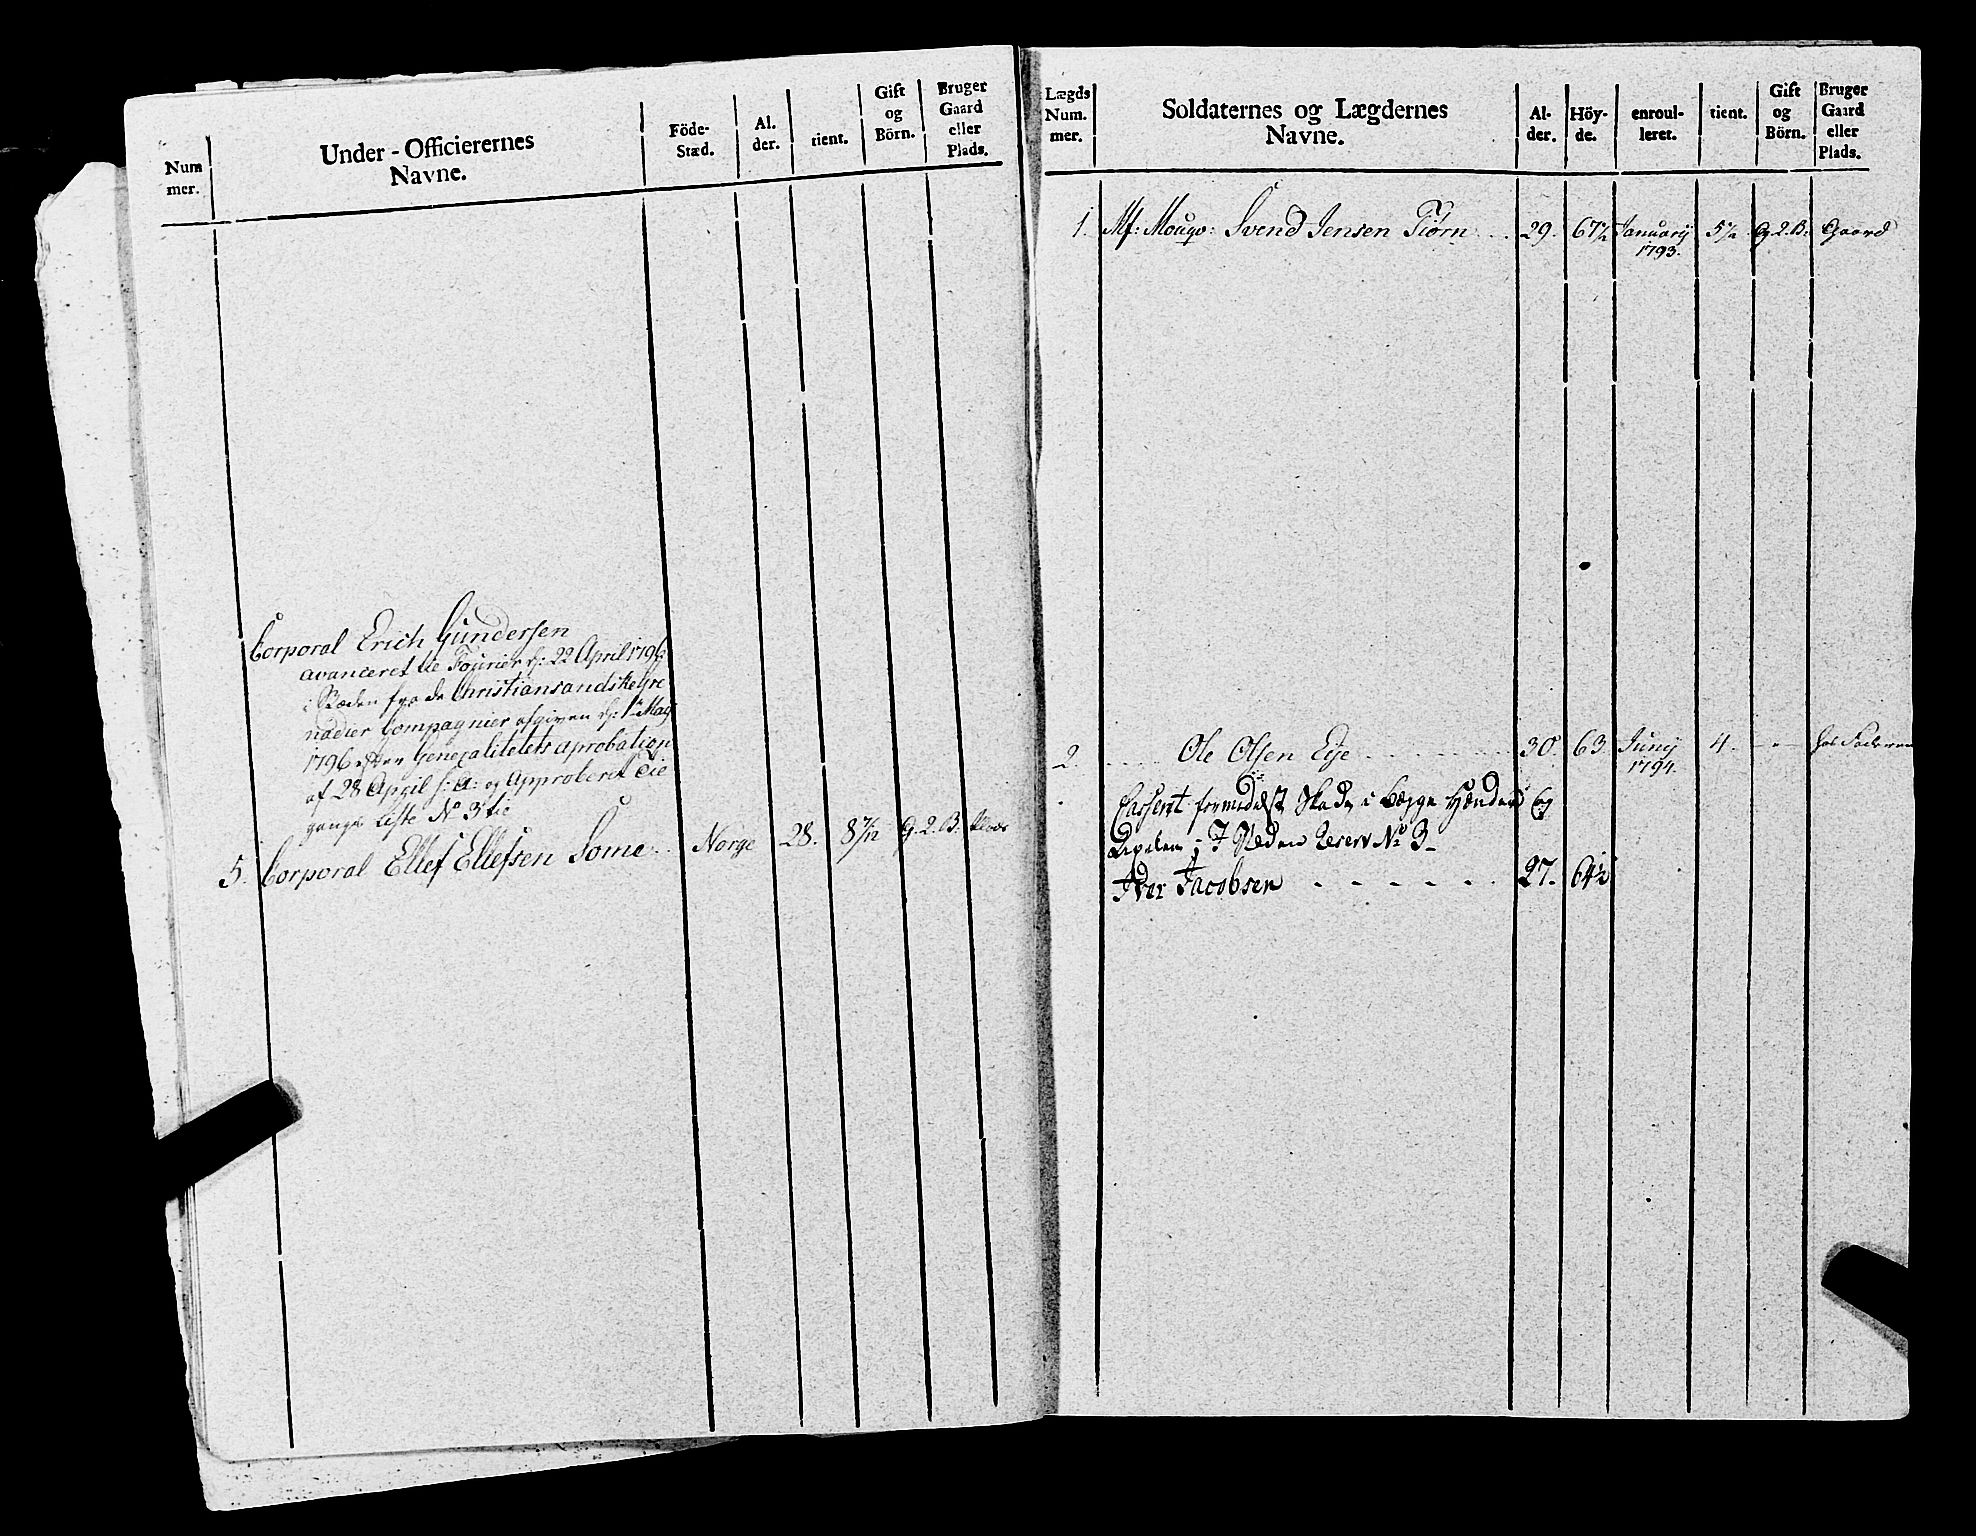 Num
mer.
Under-Officierernes
Navne.
Föde-
Stæd.
Al.
der.
tient.
Gift
og
Börn.
Bruger
Gaard
eller
Plads.
Corporal Erich Gundersen
avanceret til Fourier d: 22 April 1796
i Stæden fra de Christiansandske Gre
nadier Compagnier afgiven d: 1te May
1796 efter Generalitetets aprobation
af 28 April s: A: og Approberet
gangs Liste No 3
5. Corporal Ellef Ellefsen Some Norge 28. 8 7/12 G. 2. B. Plads
Lægds
Num.
mer.
Soldaternes og Lægdernes
Navne.
Al-
der.
Höy-
de.
enroul-
leret.
tient.
Gift
og
Börn.
Bruger
Gaard
eller
Plads.
1. Svend Jensen Tiørn 29. 67½ January 5½ G 2. B. Gaard
1793.
2 Ole Olsen Eje 30. 63 Juny 4. - - hos Faderen
1794.
Casseret formedelst Skade i begge Hænder og
i Steden Reserv No 3
Iver Jacobsen 27. 64½